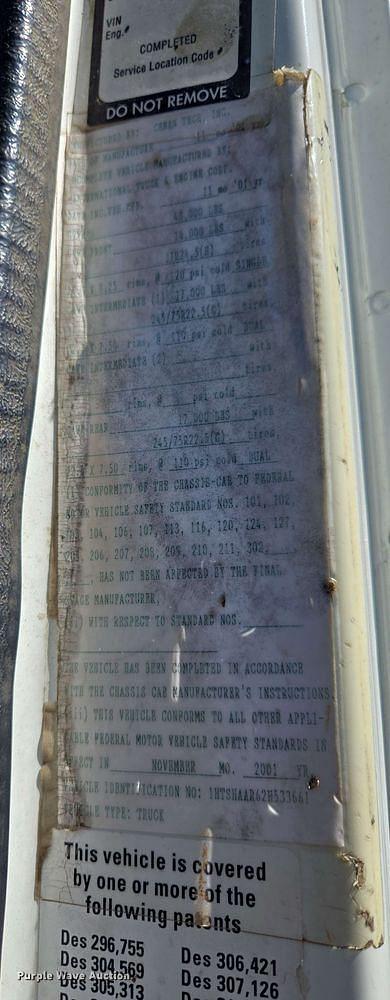 VIN
Eng.#
COMPLETED
Service Location Code #
DO NOT REMOVE
BY: TECH, INC.
OF MANUFACTURE 11 mo '01 yr
VEHICLE MANUFACTURED BY:
TRUCK & ENGINE CORP.
11 mo '01 yr
48,000 LBS
FRONT 14,000 LBS with
tires,
X 8.25 rims, @ 120 psi cold SINGLE
INTERMEDIATE (1) 17,000 LBS with
245/75R22.5(G) tires,
X 7.50 rims, @ 110 psi cold DUAL
INTERMEDIATE (2) with
tires,
rims, @ psi cold
REAR 17,000 LBS with
245/75R22.5(G) tires,
X 7.50 rims, @ 110 psi cold DUAL
CONFORMITY OF THE CHASSIS-CAB TO FEDERAL
MOTOR VEHICLE SAFETY STANDARD NOS. 101, 102,
103, 104, 106, 107, 113, 116, 120, 124, 127,
206, 207, 208, 209, 210, 211, 302,
HAS NOT BEEN AFFECTED BY THE FINAL
STAGE MANUFACTURER.
WITH RESPECT TO STANDARD NOS.
THE VEHICLE HAS BEEN COMPLETED IN ACCORDANCE
WITH THE CHASSIS CAB MANUFACTURER'S INSTRUCTIONS.
(iii) THIS VEHICLE CONFORMS TO ALL OTHER APPLI-
CABLE FEDERAL MOTOR VEHICLE SAFETY STANDARDS IN
EFFECT IN NOVEMBER MO. 2001 YR.
VEHICLE IDENTIFICATION NO: 1HTSHAAR62H533661
VEHICLE TYPE: TRUCK
This vehicle is covered
by one or more of the
following patents
Des 296,755
Des 304,569
Des 305,313
Des 306,421
Des 307,126
Purple Wave Auction